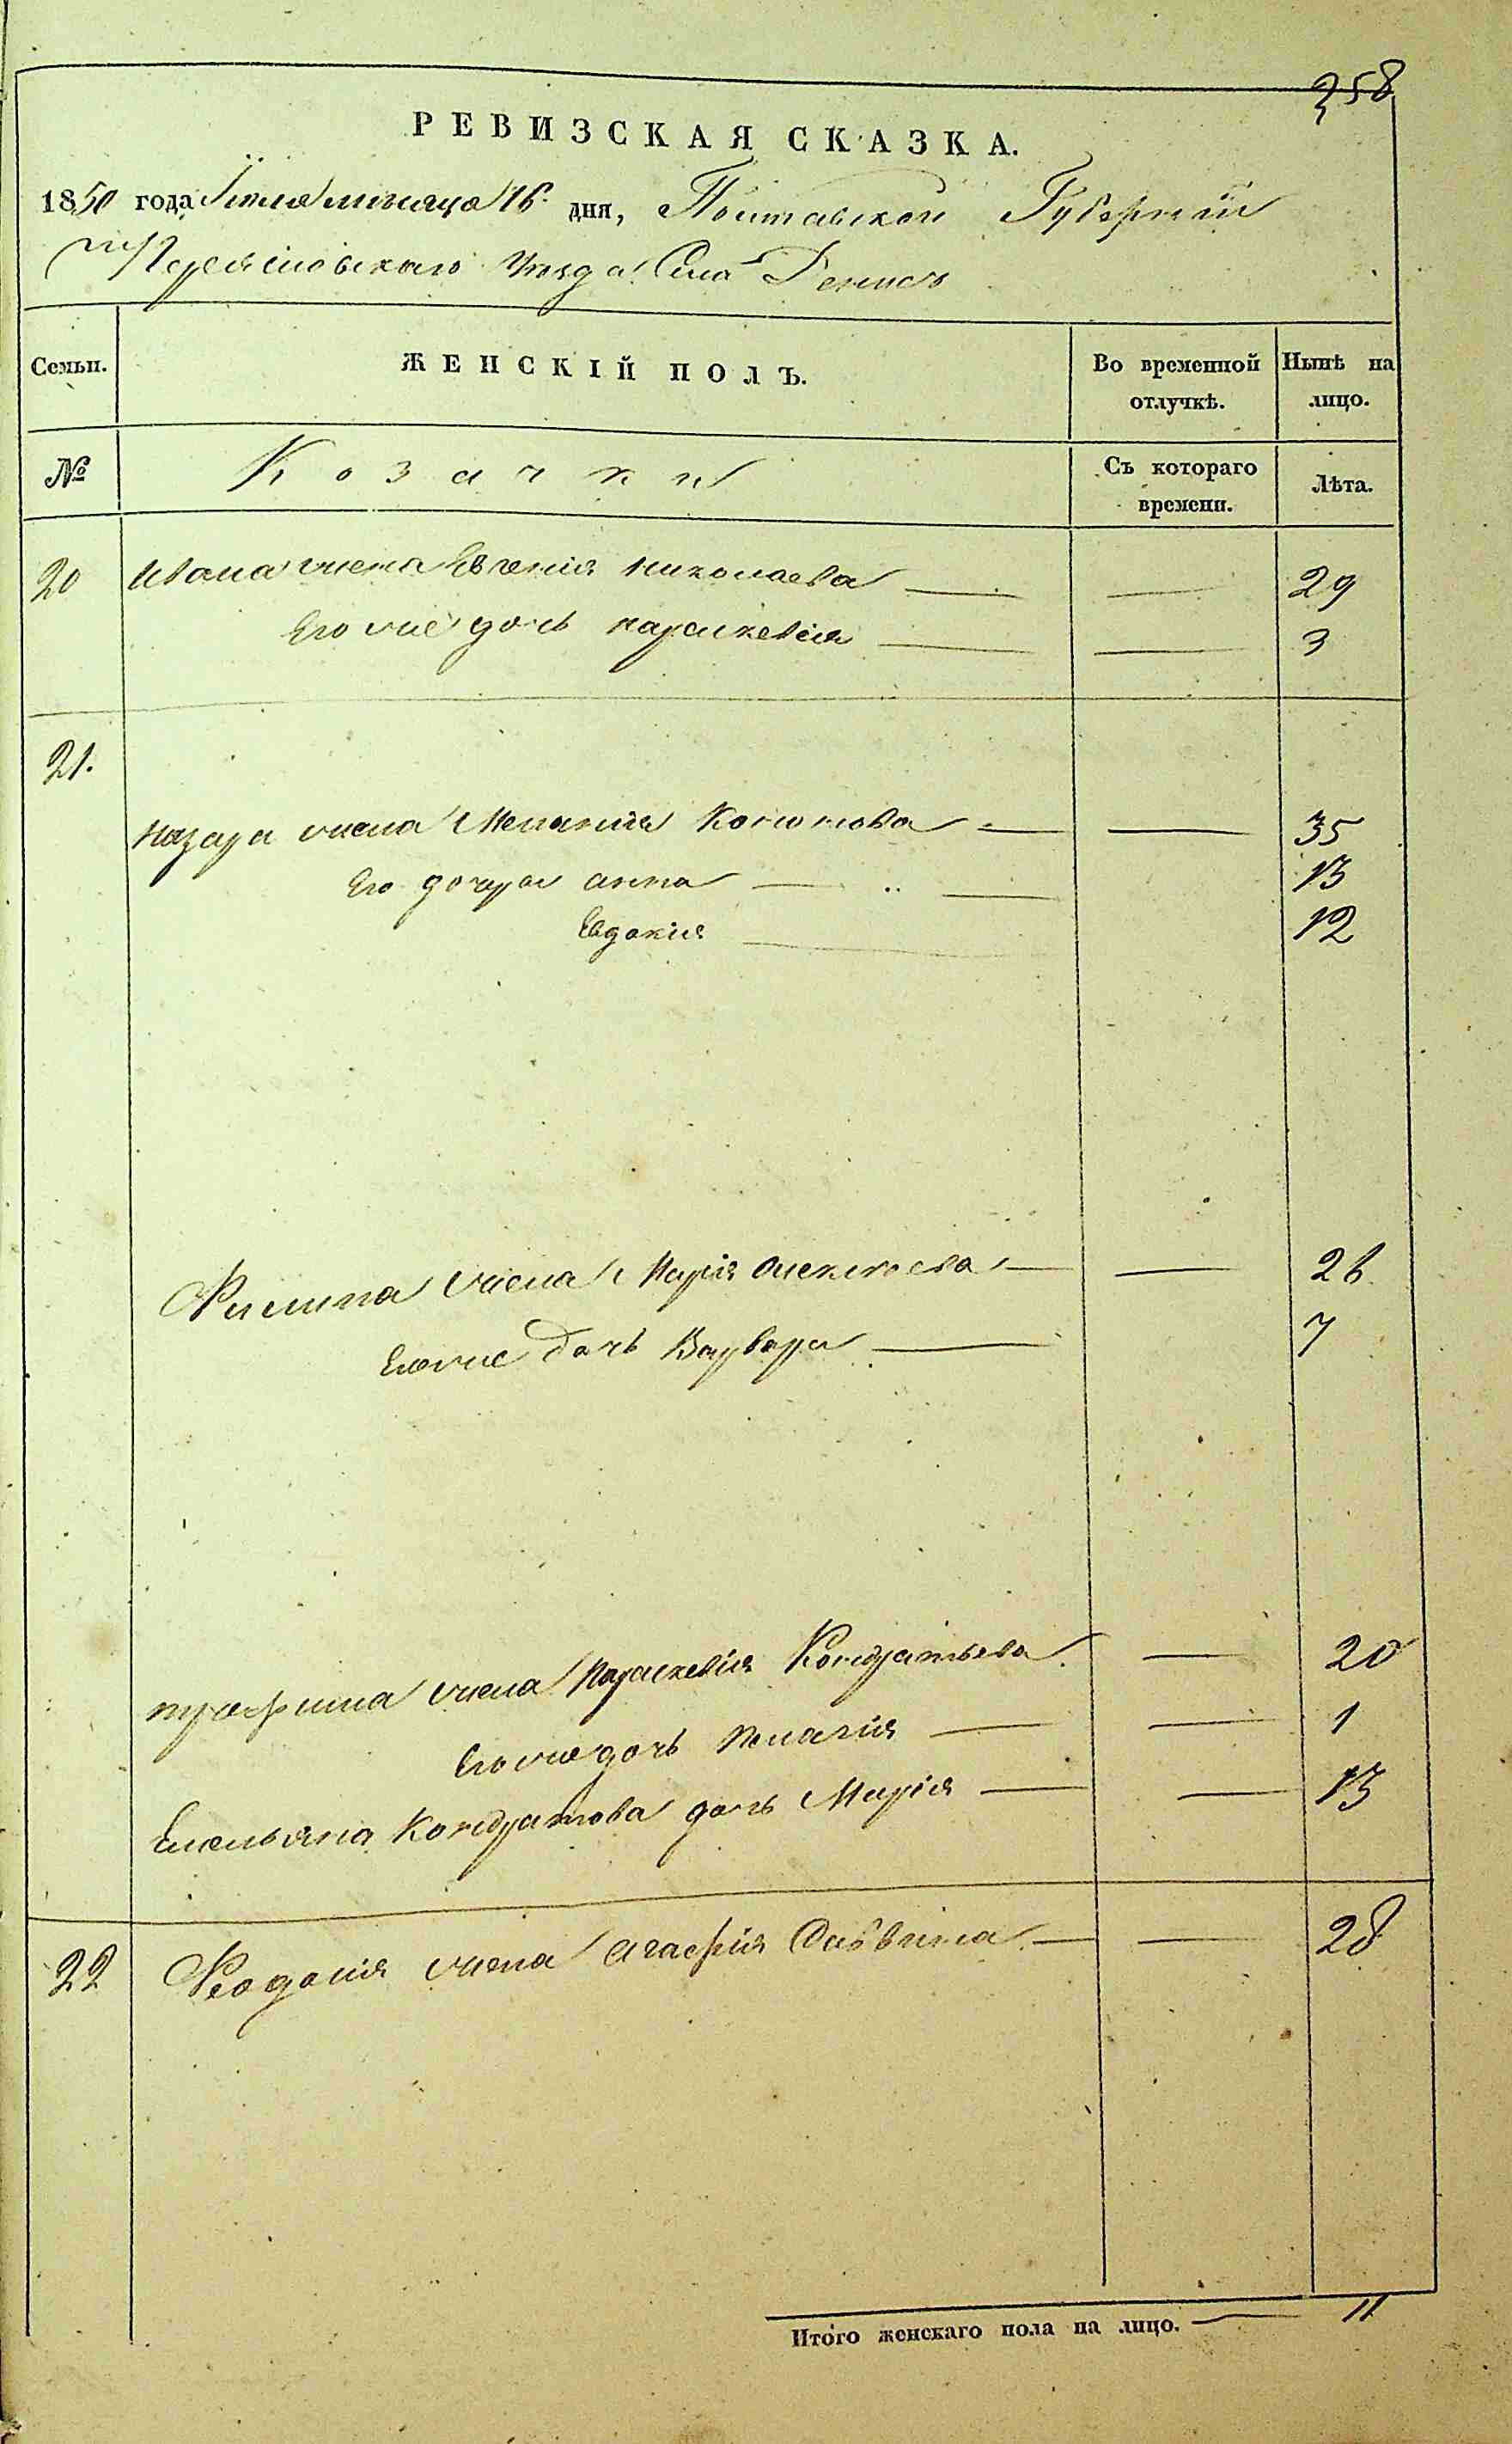 258
РЕВИЗСКАЯ СКАЗКА.
1850 года Іюля мѣсяца 16 дня, Полтавской Губерніи
Переяславскаго Уѣзда Села Денисъ
Семьи. ЖЕНСКІЙ ПОЛЪ. Во временной отлучкѣ. Нынѣ на лицо.
№ Козачки Съ котораго времени. Лѣта.
20 Ивана жена Евгенія Николаева — — 29
Его же дочь Параскевія — — 3
21.
Назара жена Меланія Кононова — — 35
Его дочери Анна — — 13
Евдокія — 12
Филипа жена Марія Алексѣева — — 26
Его же дочь Варвара — 7
Трофима жена Параскевія Кондратьева — 20
Его же дочь Пелагія — — 1
Емельяна Кондратова дочь Марія — — 13
22 Феодосія жена Агафія Саввина — — 28
Итого женскаго пола на лицо. — 11